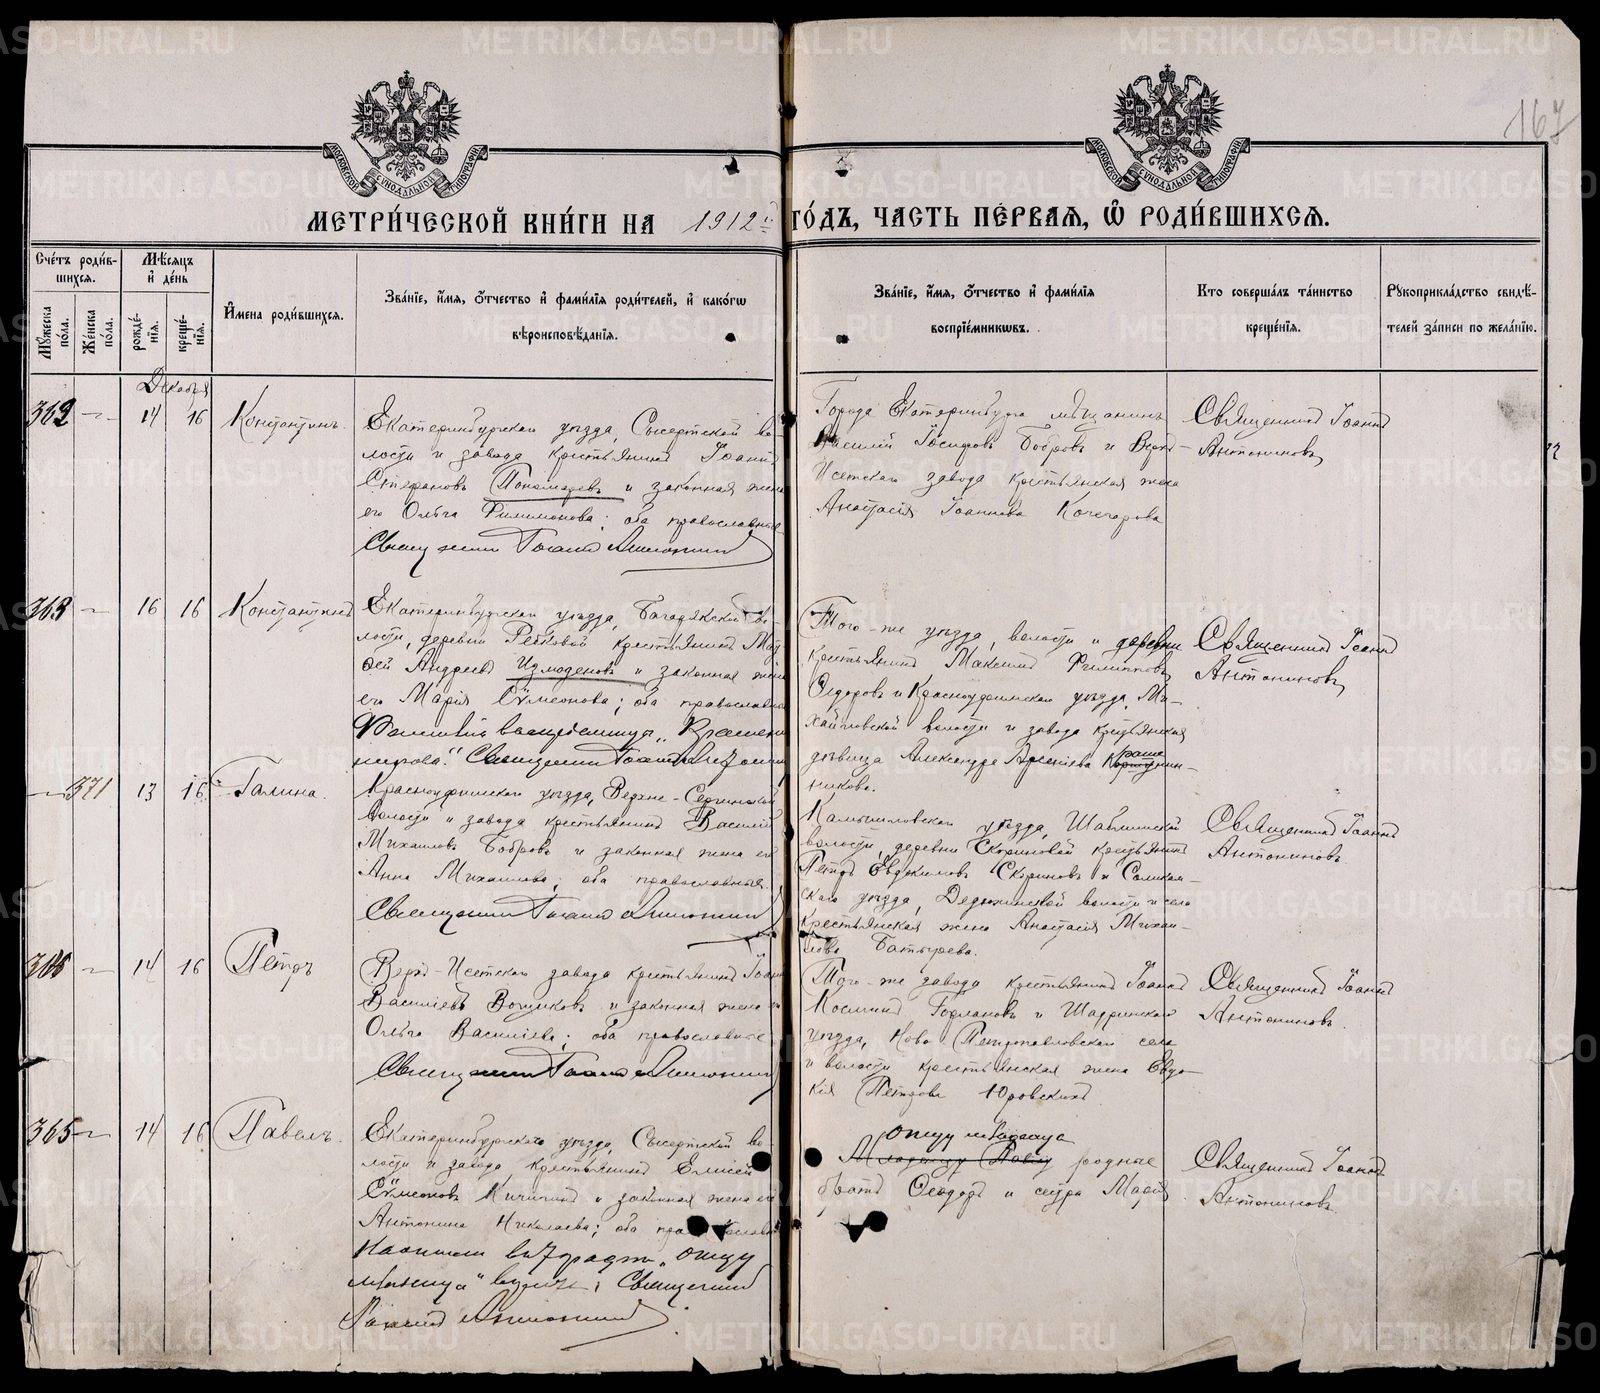 167
МЕТРИ́ЧЕСКОЙ КНИ́ГИ НА 1912 ГО́ДЪ, ЧАСТЬ ПЕ́РВАЯ, Ѿ РОДИ́ВШИХСЯ.
Сче́тъ роди́в-
шихся.
Му́жеска по́ла.
Же́нска по́ла.
Мѣ́сяцъ
и́ де́нь
рожде́-
нїя.
креще́-
нїя.
И́мена роди́вшихся.
Зва́нїе, и́мя, ѻ́тчество и́ фами́лїя роди́телей, и́ како́гѡ
вѣроисповѣ́данїя.
Зва́нїе, и́мя, ѻ́тчество и́ фами́лїя
воспрїе́мникѡвъ.
Кто соверша́лъ та́инство
креще́нїя.
Рꙋкоприкла́дство свидѣ́-
телей за́писи по жела́нїю.
Декабря
362 — 14 16 Константинъ.
Екатеринбургскаго уѣзда, Сысертской во-
лости и завода крестьянинъ Іоаннъ
Стефановъ Пономаревъ и законная жена
его Ольга Филимонова; оба православные
Священникъ Іоаннъ Антониновъ
Города Екатеринбурга мѣщанинъ
Василій Іосифовъ Бобровъ и Верхъ-
Исетскаго завода крестьянская жена
Анастасія Іоаннова
Священникъ Іоаннъ
Антониновъ
363 — 16 16 Константинъ
Екатеринбургскаго уѣзда, Багарякской во-
лости, деревни крестьянинъ
Андреевъ Измоденовъ и законная жена
его Марія Сѵмеонова; оба православные
Фамилія воспріемницы „
Священникъ Іоаннъ Антониновъ
Того-же уѣзда, волости и деревни
крестьянинъ Максимъ Филипповъ
Сидоровъ и Красноуфимскаго уѣзда, Ми-
хайловской волости и завода крестьянская
дѣвица Александра Арсеніева
Священникъ Іоаннъ
Антониновъ
— 371 13 16 Галина.
Красноуфимскаго уѣзда, Верхне-Сергинской
волости и завода крестьянинъ Василій
Михаиловъ Бобровъ и законная жена его
Анна Михаилова; оба православные.
Священникъ Іоаннъ Антониновъ
Камышловскаго уѣзда, Шаблишской
волости, деревни Скориновой крестьянинъ
Петръ Евдокимовъ Скориновъ и Соликам-
скаго уѣзда, Дедюхинской волости и села
крестьянская жена Анастасія Михаи-
лова Батырева.
Священникъ Іоаннъ
Антониновъ.
— 14 16 Петръ
Верхъ-Исетскаго завода крестьянинъ Іоаннъ
Василіевъ и законная жена его
Ольга Василіева; оба православные
Священникъ Іоаннъ Антониновъ
Того-же завода крестьянинъ Іоаннъ
Косминъ и Шадринскаго
уѣзда, Ново Петропавловскаго села
и волости крестьянская жена Евдо-
кія Петрова Юровскихъ
Священникъ Іоаннъ
Антониновъ.
365 — 14 16 Павелъ.
Екатеринбургскаго уѣзда, Сысертской во-
лости и завода, крестьянинъ Елисей
Сѵмеоновъ Кичигинъ и законная жена его
Антонина Николаева; оба православные
Написано въ 7 графѣ „отцу
младенца“ вѣрно. Священникъ
Іоаннъ Антониновъ
отцу младенца
Младенцу Павлу родные
братъ Ѳеодоръ и сестра Марія
Священникъ Іоаннъ
Антониновъ.